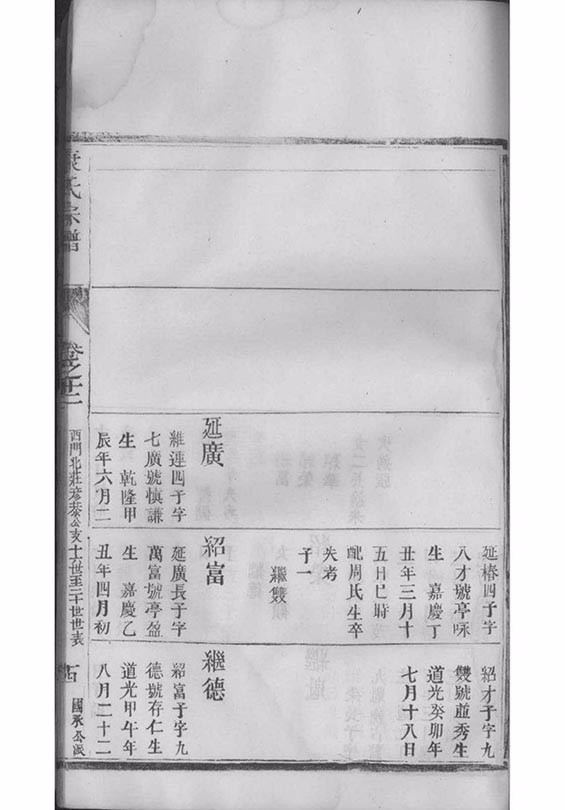 紹才子字九
雙號蓮秀生
道光癸卯年
七月十八日
延椿四子字
八才號亭咏
生 嘉慶丁
丑年三月十
五日巳時
配周氏生卒
失考
子一
繼雙
延廣
維連四子字
七廣號慎謙
生 乾隆甲
辰年六月二
紹富
延廣長子字
萬富號亭盈
生 嘉慶乙
丑年四月初
繼德
紹富子字九
德號存仁生
道光甲午年
八月二十二
氏宗譜
卷之廿二
西門北莊彦恭公支十六世至二十世世表
國承公派